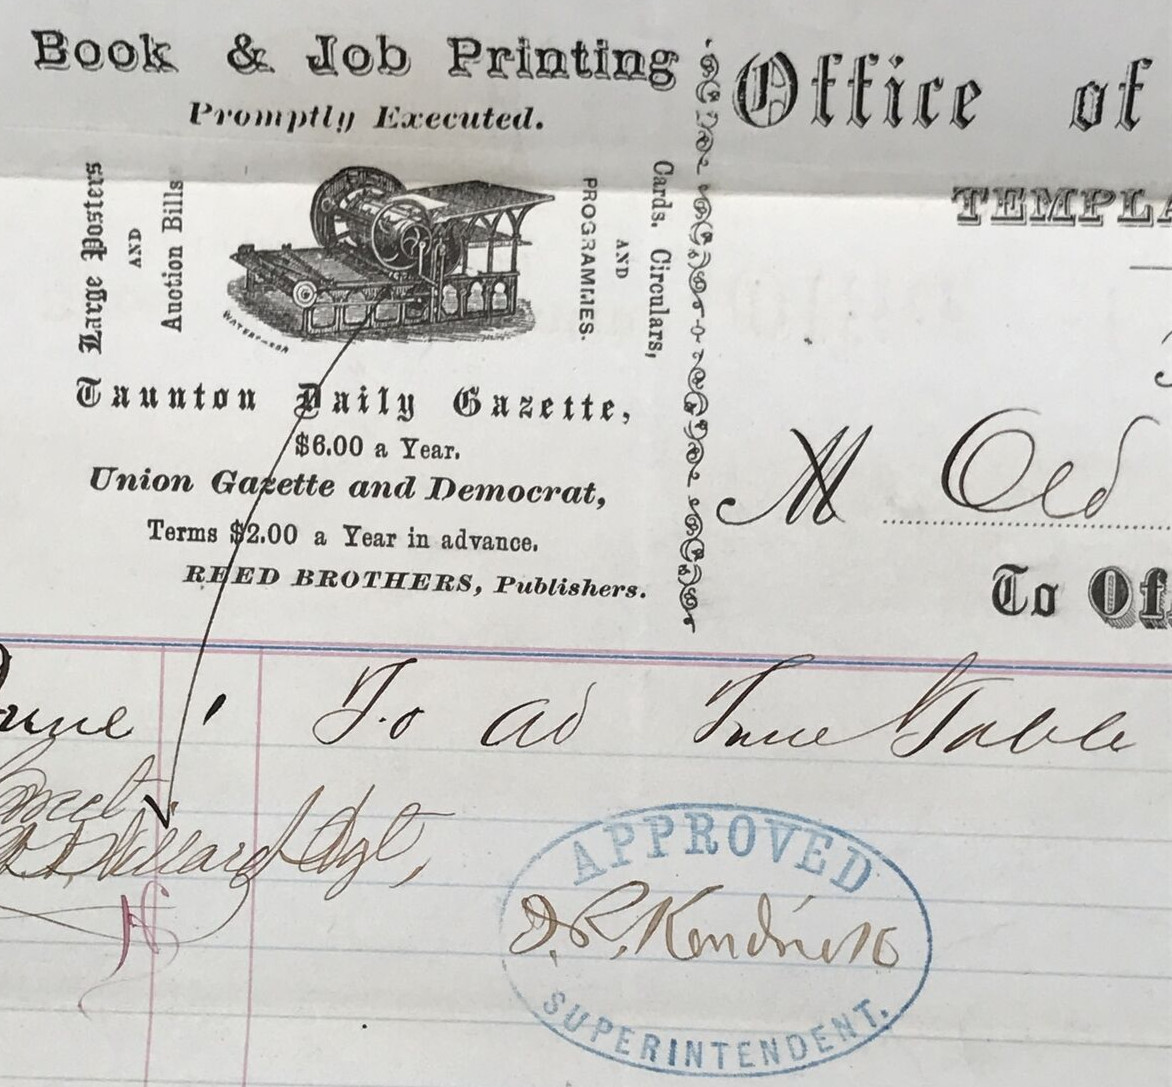 Book & Job Printing
Promptly Executed.
Large Posters
AND
Auction Bills
PROGRAMMES.
AND
Cards, Circulars,
Taunton Daily Gazette,
$6.00 a Year.
Union Gazette and Democrat,
Terms $2.00 a Year in advance.
REED BROTHERS, Publishers.
Office of
TEMPLA
M Old
To Of
June 1 To ad Time Table
Correct
Agt,
APPROVED
J.R. Kendrick
SUPERINTENDENT.